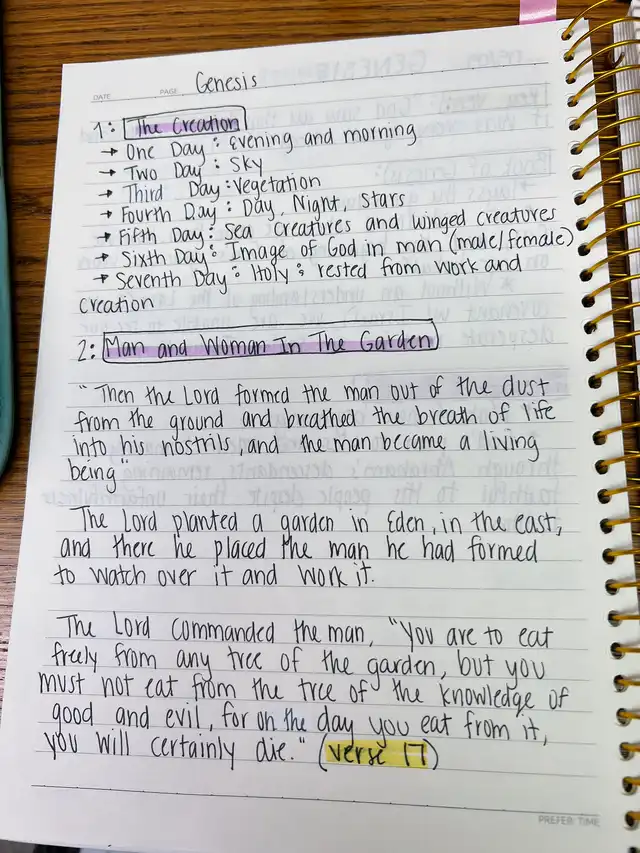 Genesis
DATE PAGE
1: The Creation
→ One Day: Evening and morning
→ Two Day: Sky
→ Third Day: Vegetation
→ Fourth Day: Day, Night, Stars
→ Fifth Day: Sea Creatures and winged creatures
→ Sixth Day: Image of God in man (male/female)
→ Seventh Day: Holy: rested from work and
creation
2: Man and Woman In The Garden
"Then the Lord formed the man out of the dust
from the ground and breathed the breath of life
into his nostrils, and the man became a living
being"
The Lord planted a garden in Eden, in the east,
and there he placed the man he had formed
to watch over it and work it.
The Lord commanded the man, "You are to eat
freely from any tree of the garden, but you
must not eat from the tree of the knowledge of
good and evil, for on the day you eat from it,
you will certainly die." (verse 17)
PREFER TIME